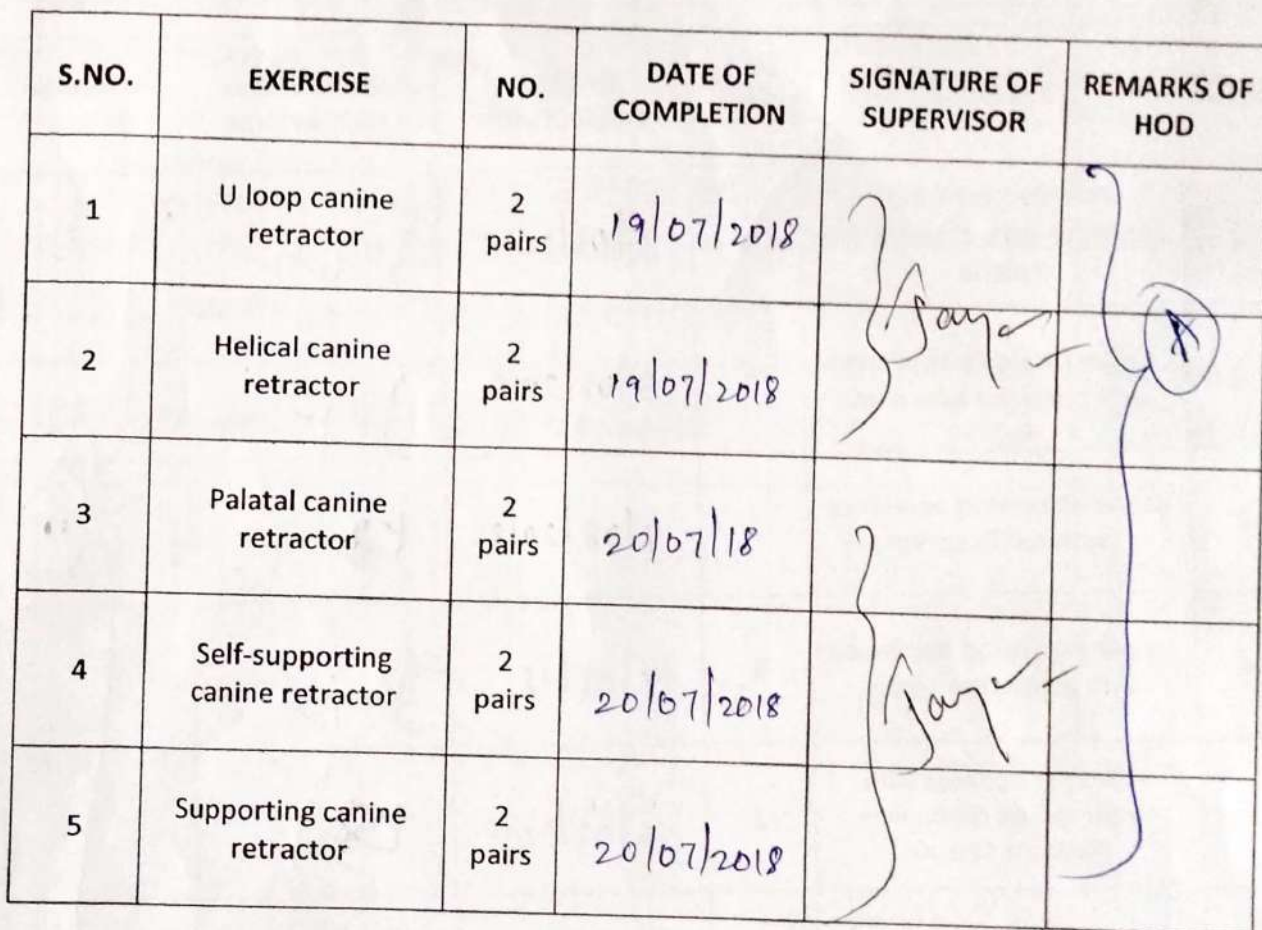 S.NO. EXERCISE NO. DATE OF COMPLETION SIGNATURE OF SUPERVISOR REMARKS OF HOD
1 U loop canine retractor 2 pairs 19/07/2018
2 Helical canine retractor 2 pairs 19/07/2018 A
3 Palatal canine retractor 2 pairs 20/07/18
4 Self-supporting canine retractor 2 pairs 20/07/2018
5 Supporting canine retractor 2 pairs 20/07/2018